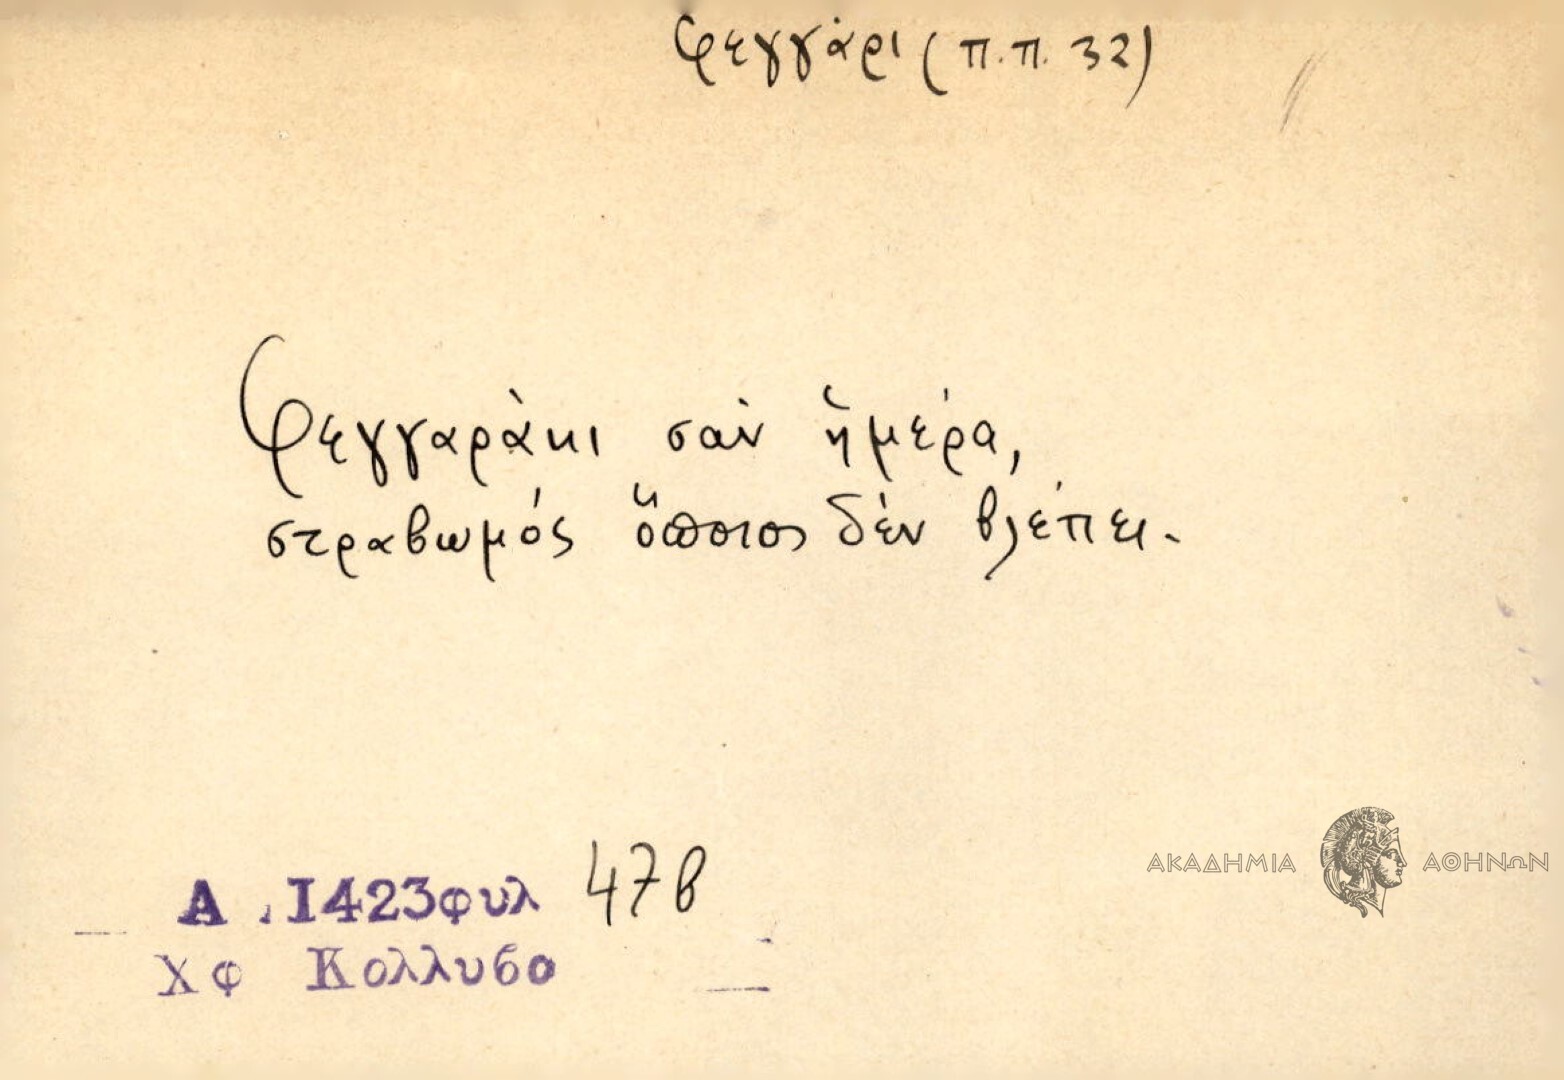 φεγγάρι (π.π. 32)
Φεγγαράκι σὰν ἡμέρα,
στραβωμός ὅποιος δὲν βλέπει.
ΑΚΑΔΗΜΙΑ ΑΘΗΝΩΝ
Α .1423φυλ 47β
Χφ Κολλυβο